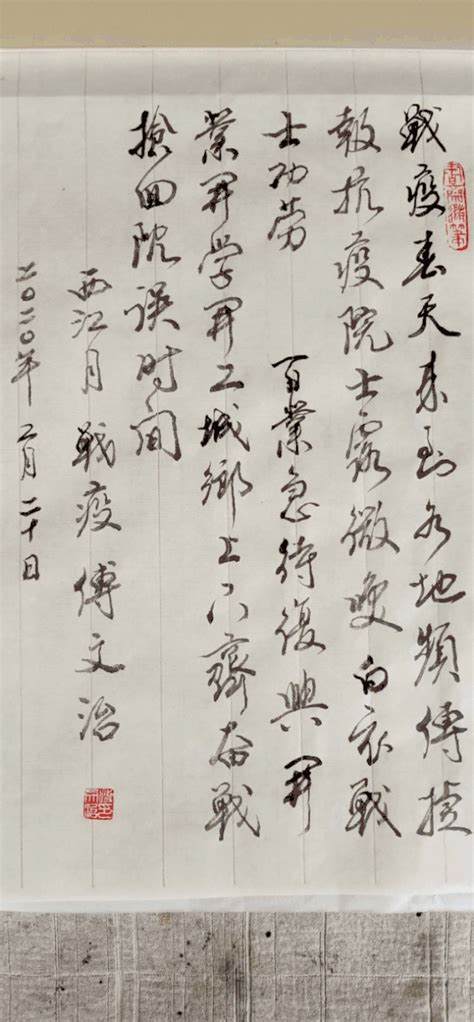 戰疫春天来到各地頻傳捷
報抗疫院士露微咲白衣戰
士功劳 百業急待復興 開
業開学開工城鄉上下齊奋戰
搶回耽误时间
西江月 戰疫 傅文治
二〇二〇年 二月二十日